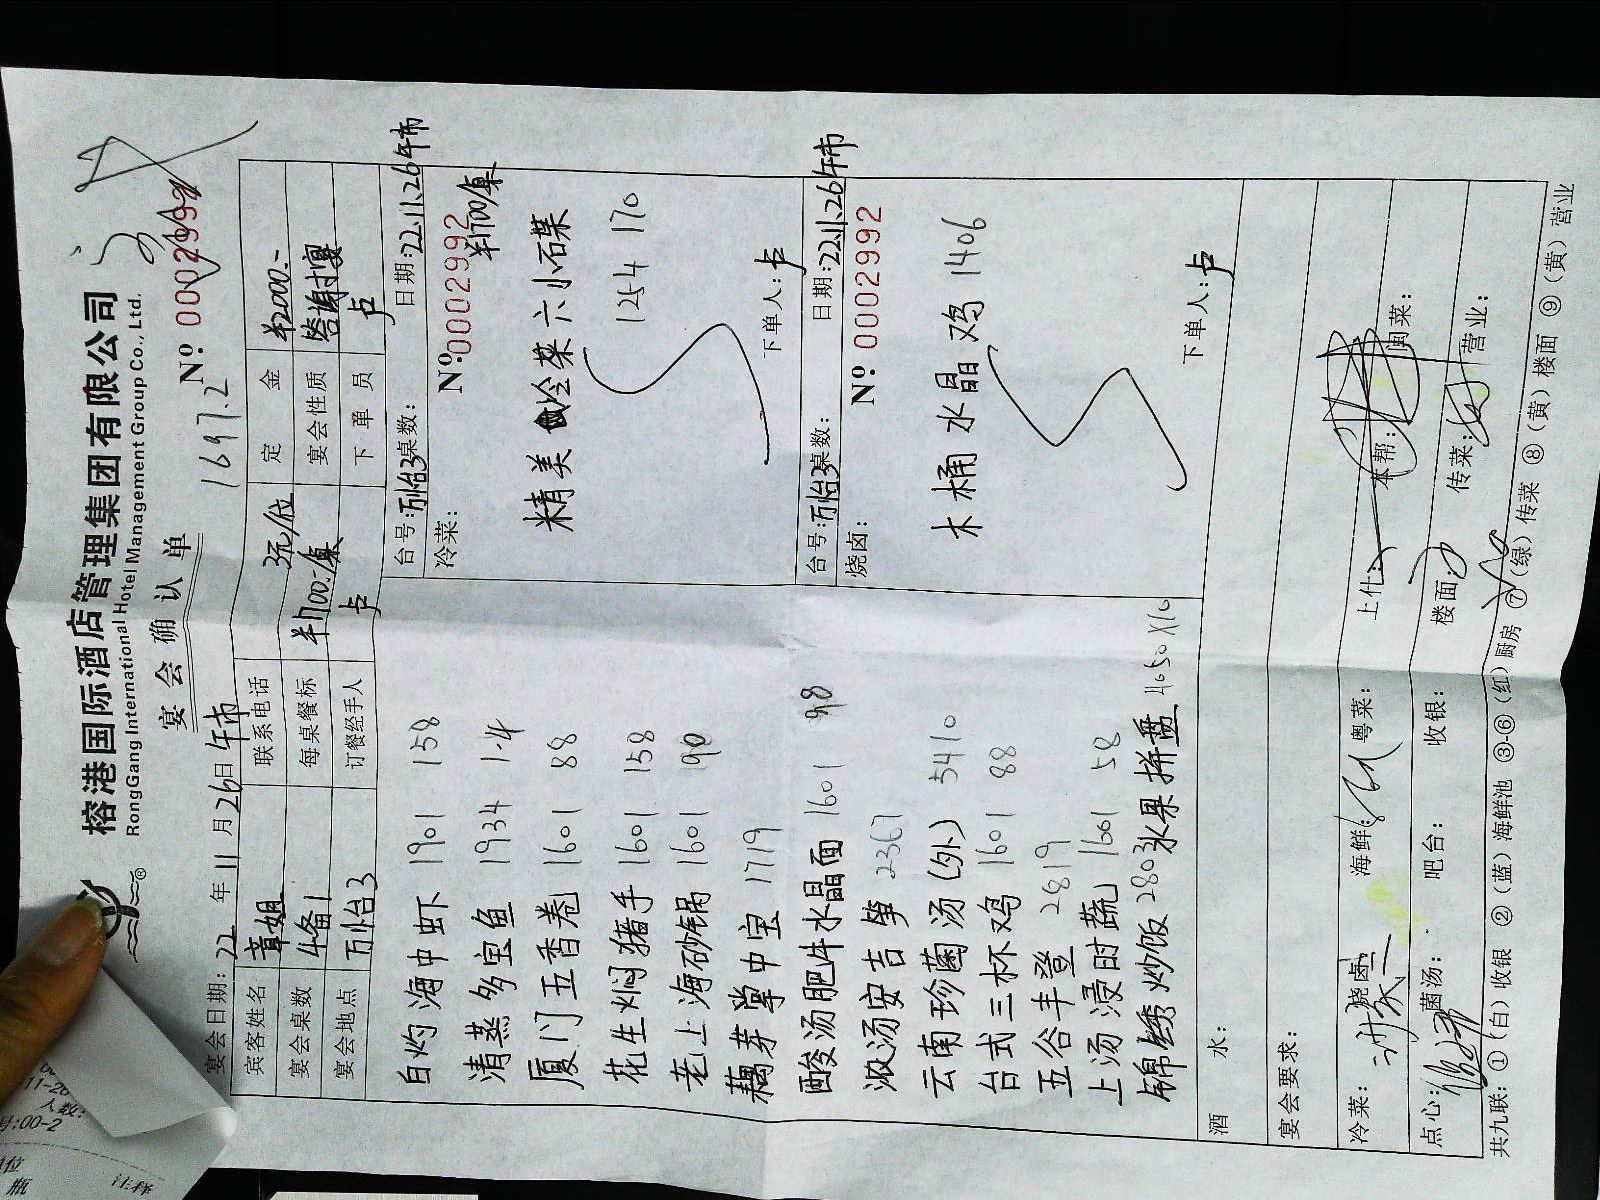 榕港国际酒店管理集团有限公司
RongGang International Hotel Management Group Co., Ltd.
宴会确认单
1697.2
№ 0002992
宴会日期: 22 年 11 月 26日 午市
宾客姓名 章姐 联系电话 3元/位 定金 ¥2000.-
宴会桌数 4备1 每桌餐标 ¥1700.-/桌 宴会性质 答谢宴
宴会地点 万怡3 订餐经手人 卢 下单员 卢
白灼海中虾 1901 158
清蒸多宝鱼 1934 1.4
厦门五香卷 1601 88
花生焖猪手 1601 158
老上海砂锅 1601 90
藕芽掌中宝 1719
酸汤肥牛水晶面 1601 98
浓汤安吉笋 2367
云南珍菌汤(外) 5410
台式三杯鸡 1601 88
五谷丰登 2819
上汤浸时蔬 1601 58
锦绣炒饭 2803 水果拼盘 4650×10
台号: 万怡3 桌数: 日期: 22.11.26午市
冷菜: № 0002992
¥1700/桌
精美冷菜六小碟
1254 170
下单人: 卢
台号: 万怡3 桌数: 日期: 22.11.26午市
烧卤: № 0002992
木桶水晶鸡 1406
下单人: 卢
酒水:
宴会要求:
冷菜: 烧卤: 海鲜: 粤菜: 上什: 本帮: 闽菜:
点心: 菌汤: 吧台: 收银: 楼面: 传菜: 营业:
共九联: ①(白)收银 ②(蓝)海鲜池 ③-⑥(红)厨房 ⑦(绿)传菜 ⑧(黄)楼面 ⑨(黄)营业
11-26
人数:
:00-2
位
瓶